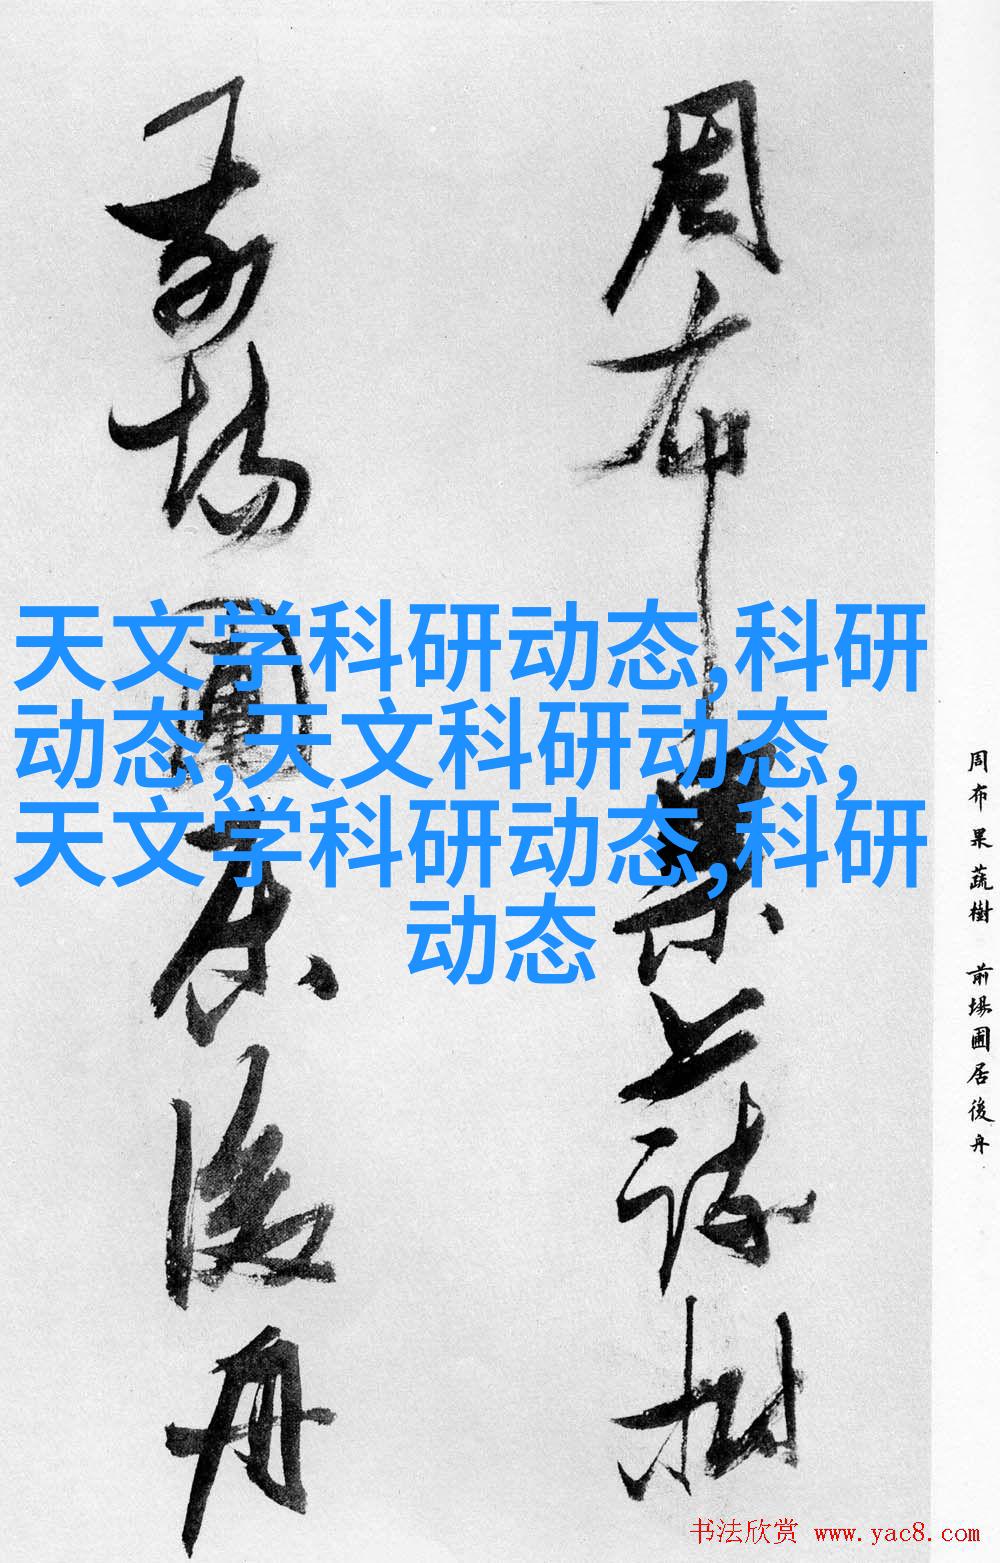 周布果蔬樹
前場圃居後舟
天文学科研动态,科研
动态,天文科研动态,
天文学科研动态,科研
动态
周布果蔬樹 前場圃居後舟
书法欣赏 www.yac8.com